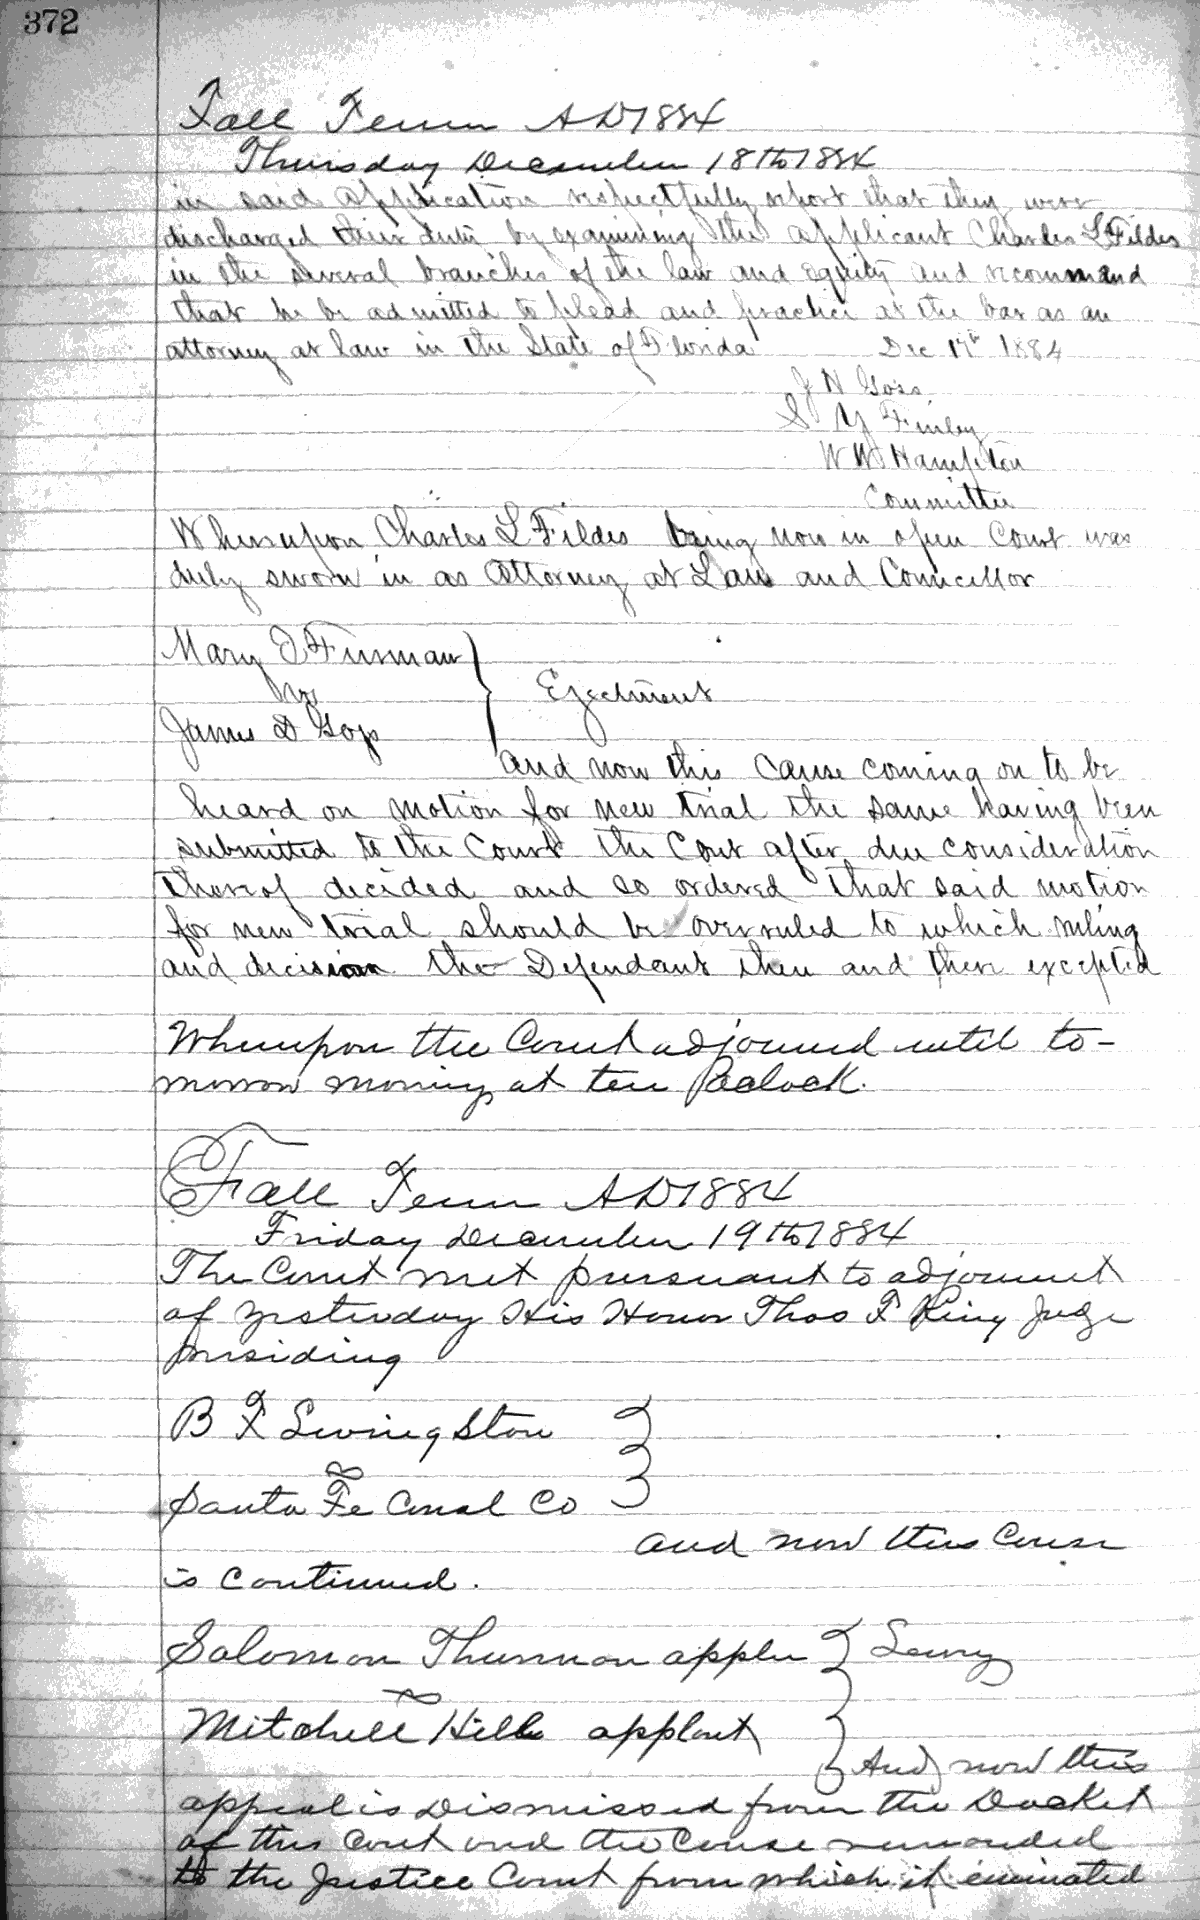 372
Fall Term AD 1884
Thursday December 18th 1884
in said application respectfully report that they were
discharged their duty by examining the applicant Charles L Fildes
in the several branches of the law and equity and recommend
that he be admitted to plead and practice at the bar as an
attorney at law in the State of Florida Dec 17th 1884
J N Goss
S Y Finley
W W Hampton
Committee
Whereupon Charles L Fildes being now in open Court was
duly sworn in as Attorney at Law and Councellor
Mary Furman
vs
James D Goss
Ejectment
and now this Cause coming on to be
heard on motion for new trial the same having been
submitted to the Court the Court after due consideration
thereof decided and so ordered that said motion
for new trial should be overruled to which ruling
and decision the Defendant then and there excepted
Whereupon the Court adjourned until to-
morrow morning at ten Oclock.
Fall Term AD 1884
Friday December 19th 1884
The Court met pursuant to adjournmt
of yesterday His Honor Thos F King Judge
presiding
B F Livingston
vs
Santa Fe Canal Co
and now this Cause
is Continued.
Solomon Thurmon applee
vs
Mitchell Hill applant
And now this
appeal is Dismissed from the Docket
of this Court and the Cause remanded
to the Justice Court from which it eminated